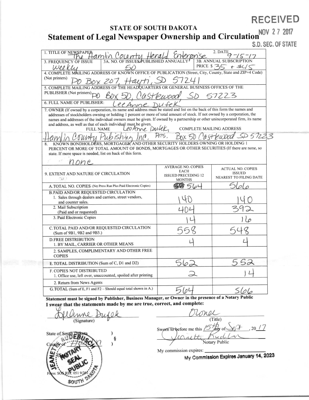 RECEIVED
NOV 27 2017
S.D. SEC. OF STATE
STATE OF SOUTH DAKOTA
Statement of Legal Newspaper Ownership and Circulation
1. TITLE OF NEWSPAPER
The Hamlin County Herald Enterprise
2. DATE
9-15-17
3. FREQUENCY OF ISSUE
Weekly
3A. NO. OF ISSUES PUBLISHED ANNUALLY
50
3B. ANNUAL SUBSCRIPTION
PRICE $ 35
4. COMPLETE MAILING ADDRESS OF KNOWN OFFICE OF PUBLICATION (Street, City, County, State and ZIP+4 Code)
(Not printers)
PO Box 207, Hayti, SD 57241
5. COMPLETE MAILING ADDRESS OF THE HEADQUARTERS OR GENERAL BUSINESS OFFICES OF THE
PUBLISHER (Not printers)
PO Box 50, Castlewood SD 57223
6. FULL NAME OF PUBLISHER:
LeeAnne Dufek
7. OWNER (If owned by a corporation, its name and address must be stated and list on the back of this form the names and
addresses of stockholders owning or holding 1 percent or more of total amount of stock. If not owned by a corporation, the
names and addresses of the individual owners must be given. If owned by a partnership or other unincorporated firm, its name
and address, as well as that of each individual must be given.
FULL NAME
LeeAnne Dufek,
COMPLETE MAILING ADDRESS
Hamlin County Publishing Inc. Pres. Box 50 Castlewood SD 57223
8. KNOWN BONDHOLDERS, MORTGAGEES AND OTHER SECURITY HOLDERS OWNING OR HOLDING 1
PERCENT OR MORE OF TOTAL AMOUNT OF BONDS, MORTGAGES OR OTHER SECURITIES (If there are none, so
state. If more space is needed, list on back of this form.
none
9. EXTENT AND NATURE OF CIRCULATION
AVERAGE NO. COPIES
EACH
ISSUED PRECEDING 12
MONTHS
ACTUAL NO. COPIES
ISSUED
NEAREST TO FILING DATE
A. TOTAL NO. COPIES (Net Press Run Plus Paid Electronic Copies)
564 566
B. PAID AND/OR REQUESTED CIRCULATION
1. Sales through dealers and carriers, street vendors,
and counter sales.
140 140
2. Mail Subscription
(Paid and/or requested)
404 392
3. Paid Electronic Copies
14 16
C. TOTAL PAID AND/OR REQUESTED CIRCULATION
(Sum of 9B1, 9B2 and 9B3.)
558 548
D. FREE DISTRIBUTION
1. BY MAIL, CARRIER OR OTHER MEANS
4 4
2. SAMPLES, COMPLIMENTARY AND OTHER FREE
COPIES
E. TOTAL DISTRIBUTION (Sum of C, D1 and D2)
562 552
F. COPIES NOT DISTRIBUTED
1. Office use, left over, unaccounted, spoiled after printing
2 14
2. Return from News Agents
G. TOTAL (Sum of E, F1 and F2 - Should equal total shown in A.)
564 566
Statement must be signed by Publisher, Business Manager, or Owner in the presence of a Notary Public
I swear that the statements made by me are true, correct, and complete:
LeeAnne Dufek
Owner
(Signature)
(Title)
State of South
Sworn before me this
2017
Notary Public
NOTARY
SEAL
PUBLIC
SOUTH DAKOTA
My commission expires
My Commission Expires January 14, 2023